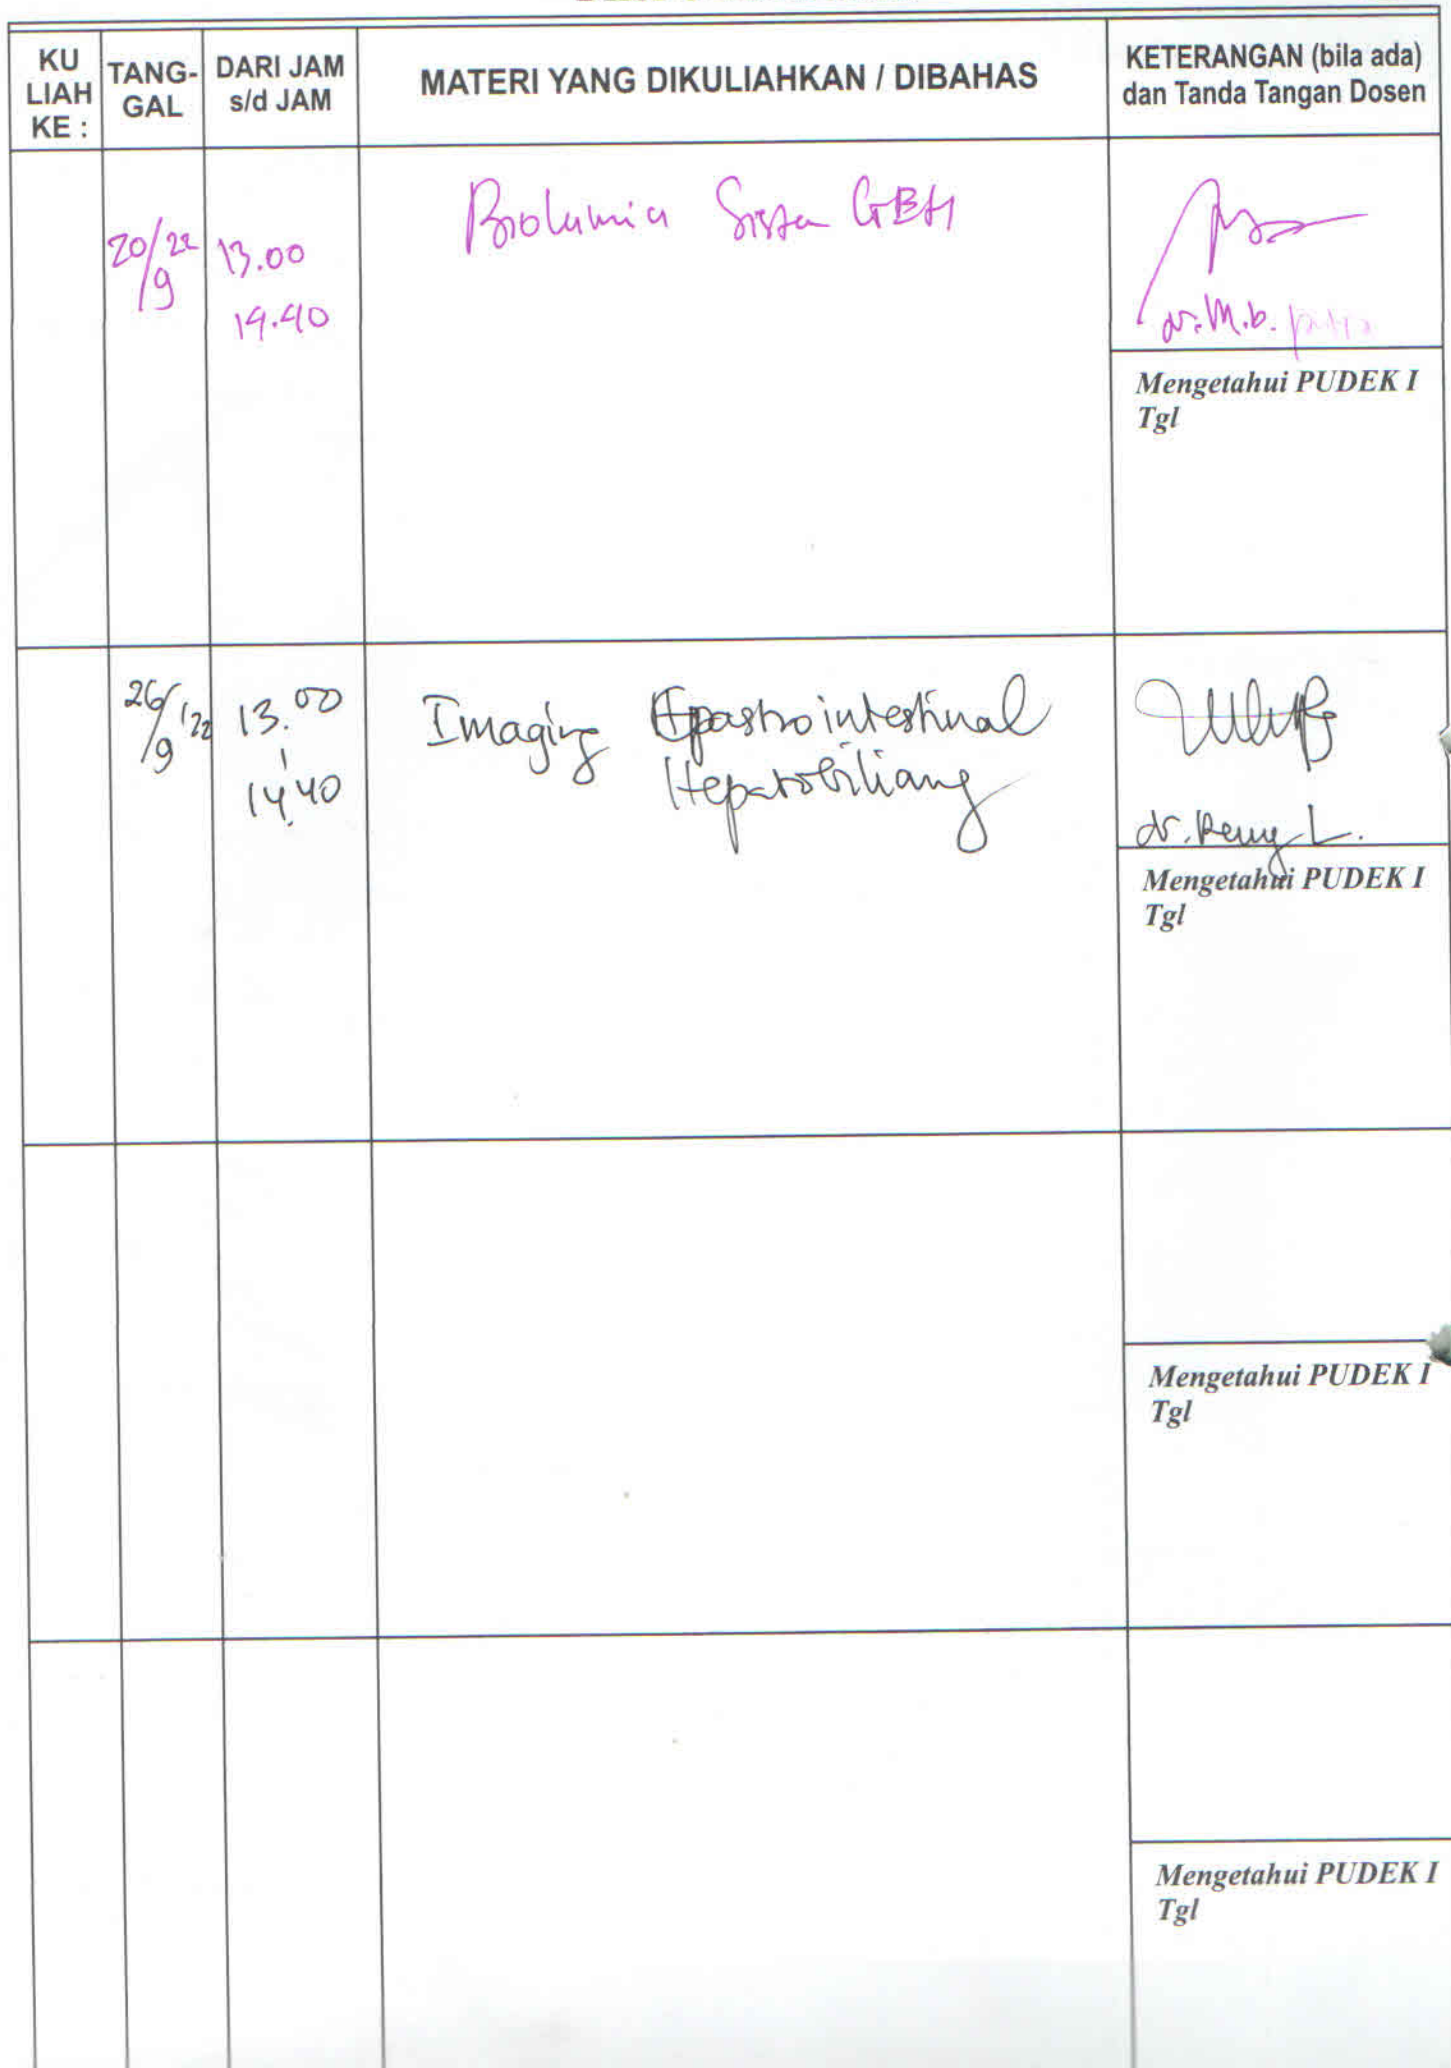 KU LIAH KE :
TANG- GAL
DARI JAM s/d JAM
MATERI YANG DIKULIAHKAN / DIBAHAS
KETERANGAN (bila ada) dan Tanda Tangan Dosen
20/22
/9
13.00
14.40
Biokimia Sistem GEH
dr. M.b. putra
Mengetahui PUDEK I
Tgl
26/ '22
/9
13.00
14.40
Imaging Gastrointestinal
Hepatobiliary
dr. L.
Mengetahui PUDEK I
Tgl
Mengetahui PUDEK I
Tgl
Mengetahui PUDEK I
Tgl